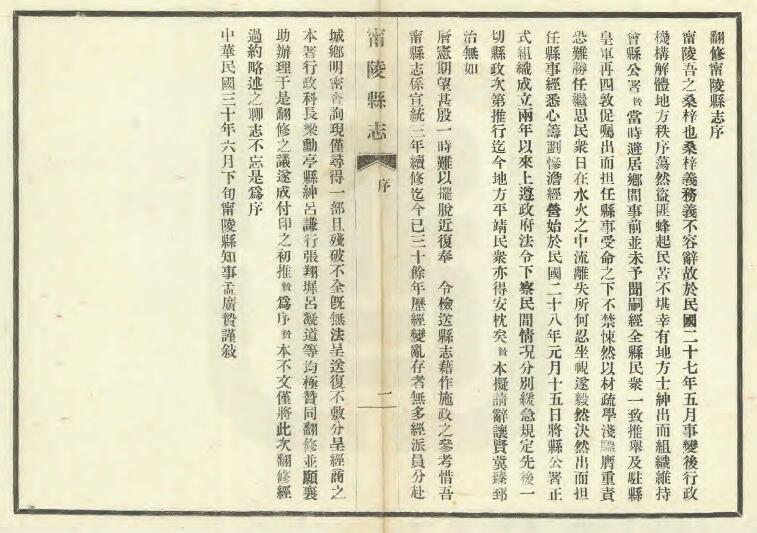 翻修甯陵縣志序
甯陵吾之桑梓也桑梓義務義不容辭故於民國二十七年五月事變後行政
機構解體地方秩序蕩然盜匪蜂起民苦不堪幸有地方士紳出而組織維持
會縣公署贊當時避居鄉間事前並未予聞嗣經全縣民衆一致推舉及駐縣
皇軍再四敦促囑出而担任縣事受命之下不禁悚然以材疏學淺驟膺重責
恐難勝任繼思民衆日在水火之中流離失所何忍坐視遂毅然決然出而担
任縣事經悉心籌劃慘澹經營始於民國二十八年元月十五日將縣公署正
式組織成立兩年以來上遵政府法令下察民間情況分別緩急規定先後一
切縣政次第推行迄今地方平靖民衆亦得安枕矣贊本擬請辭讓賢冀臻郅
治無如
層憲期望甚殷一時難以擺脫近復奉 令檢送縣志藉作施政之參考惜吾
甯縣志係宣統三年續修迄今已三十餘年歷經變亂存者無多經派員分赴
城鄉明密查詢現僅尋得一部且殘破不全既無法呈送復不敷分呈經商之
本署行政科長梁勳亭縣紳呂謙行張翔墀呂凝道等均極贊同翻修並願襄
助辦理于是翻修之議遂成付印之初推贊爲序贊本不文僅將此次翻修經
過約略述之聊志不忘是爲序
中華民國三十年六月下旬甯陵縣知事孟廣贊謹敘
甯陵縣志
序
二